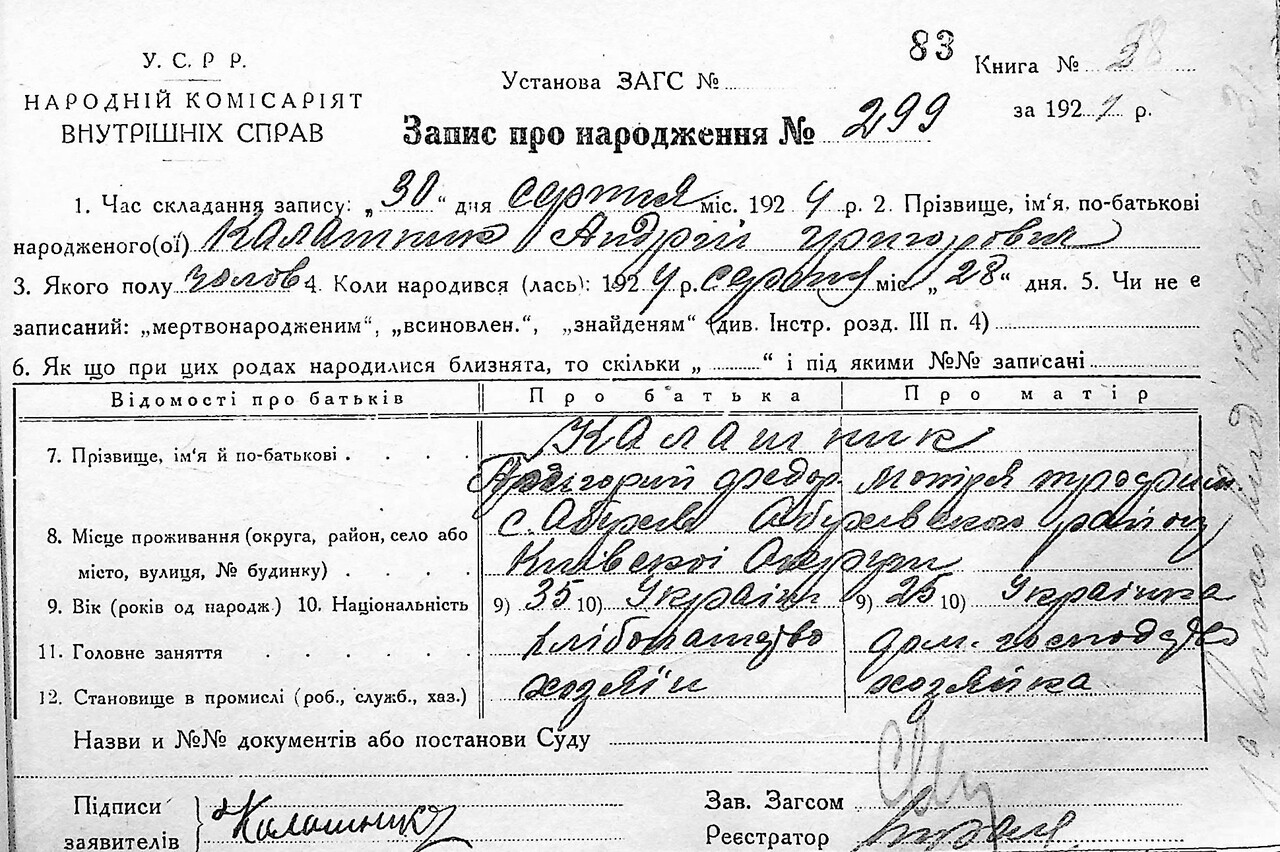 83
У. С. Р Р.
НАРОДНІЙ КОМІСАРІЯТ
ВНУТРІШНІХ СПРАВ
Установа ЗАГС №
Книга № 28
за 1927 р.
Запис про народження № 299
1. Час складання запису: „30“ дня серпня міс. 1927 р. 2. Прізвище, ім'я, по-батькові
народженого(ої) Калашник Андрій Григорович
3. Якого полу чолов 4. Коли народився (лась): 1927 р. серпня міс. „28“ дня. 5. Чи не є
записаний: „мертвонародженим“, „всиновлен.“, „знайденям“ (див. Інстр. розд. III п. 4)
6. Як що при цих родах народилися близнята, то скільки „ “ і під якими №№ записані
Відомості про батьків Про батька Про матір
7. Прізвище, ім'я й по-батькові Калашник
Григорий Федор. Мотря Трофим
8. Місце проживання (округа, район, село або с. Обухів Обухівского району
місто, вулиця, № будинку) Київскої Округи
9. Вік (років од народж.) 10. Національність 9) 35 10) Українець 9) 25 10) Українка
11. Головне заняття хлібопашество дом. господарство
12. Становище в промислі (роб., служб., хаз.) хозяїн хозяйка
Назви и №№ документів або постанови Суду
Підписи
заявителів
Калашник
Зав. Загсом
Реєстратор